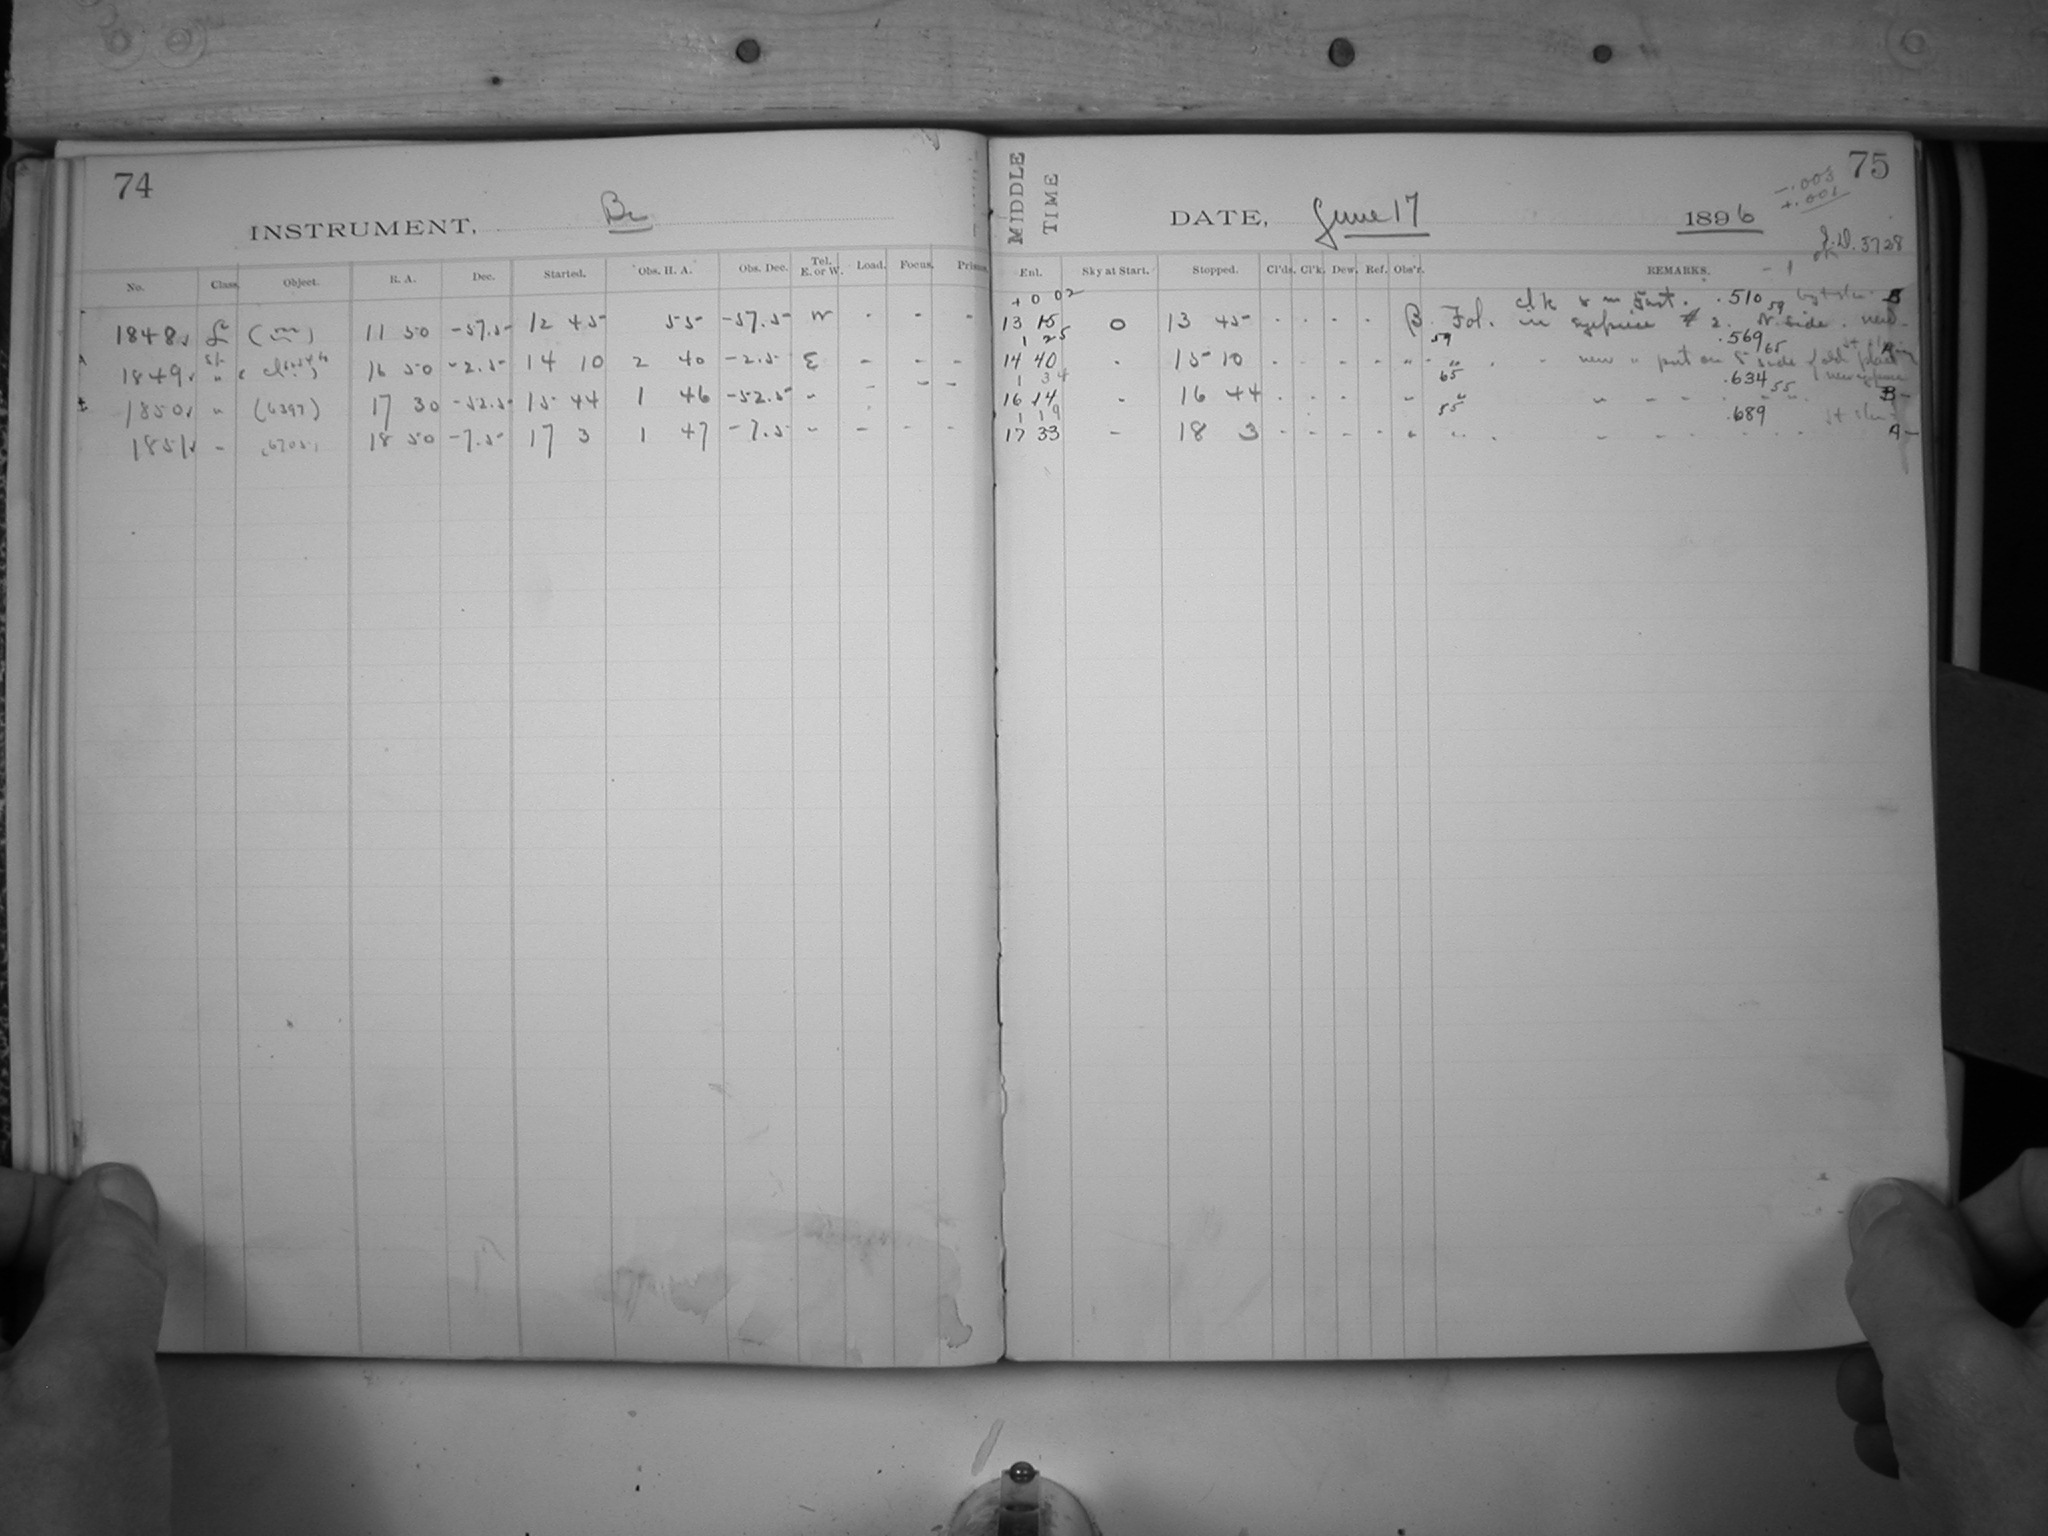 74
INSTRUMENT, Br
No. Class Object. R. A. Dec. Started. Obs. H. A. Obs. Dec. Tel. E. or W. Load. Focus. Prisms
1848 (m) 11 50 -57.5 12 45 55 -57.5 W - - -
1849 " 16 50 -2.5 14 10 2 40 -2.5 E - - -
1850 " (6397) 17 30 -52.5 15 44 1 46 -52.5 " - - -
1851 " 6705 18 50 -7.5 17 3 1 47 -7.5 " - - -
MIDDLE TIME
75
-.003
+.001
DATE, June 17 1896
J.D. 3728
Enl. Sky at Start. Stopped. Cl'ds. Cl'k. Dew. Ref. Obs'r. REMARKS. - 1
+ 0 02 clk 8 m fast. .510 59 B
13 15 0 13 45 - - - - B. Fol. in eyepiece # 2. N. side. new.
1 25 59 .569 65
14 40 - 15 10 - - - - " " " new " put on S side of old place A
1 34 65 .634 55 new eyepiece
16 14 - 16 44 - - - - " " " - - - " " B -
1 19 55 .689
17 33 - 18 3 - - - - " " " - - - A -